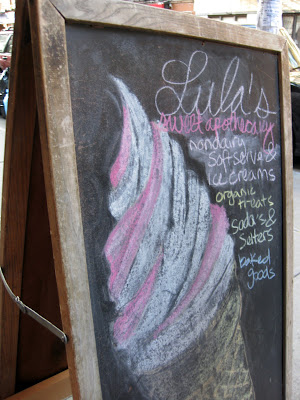 Lula's
sweet apothecary
nondairy
softserve &
ice creams
organic
treats
soda's &
seltzers
baked
goods